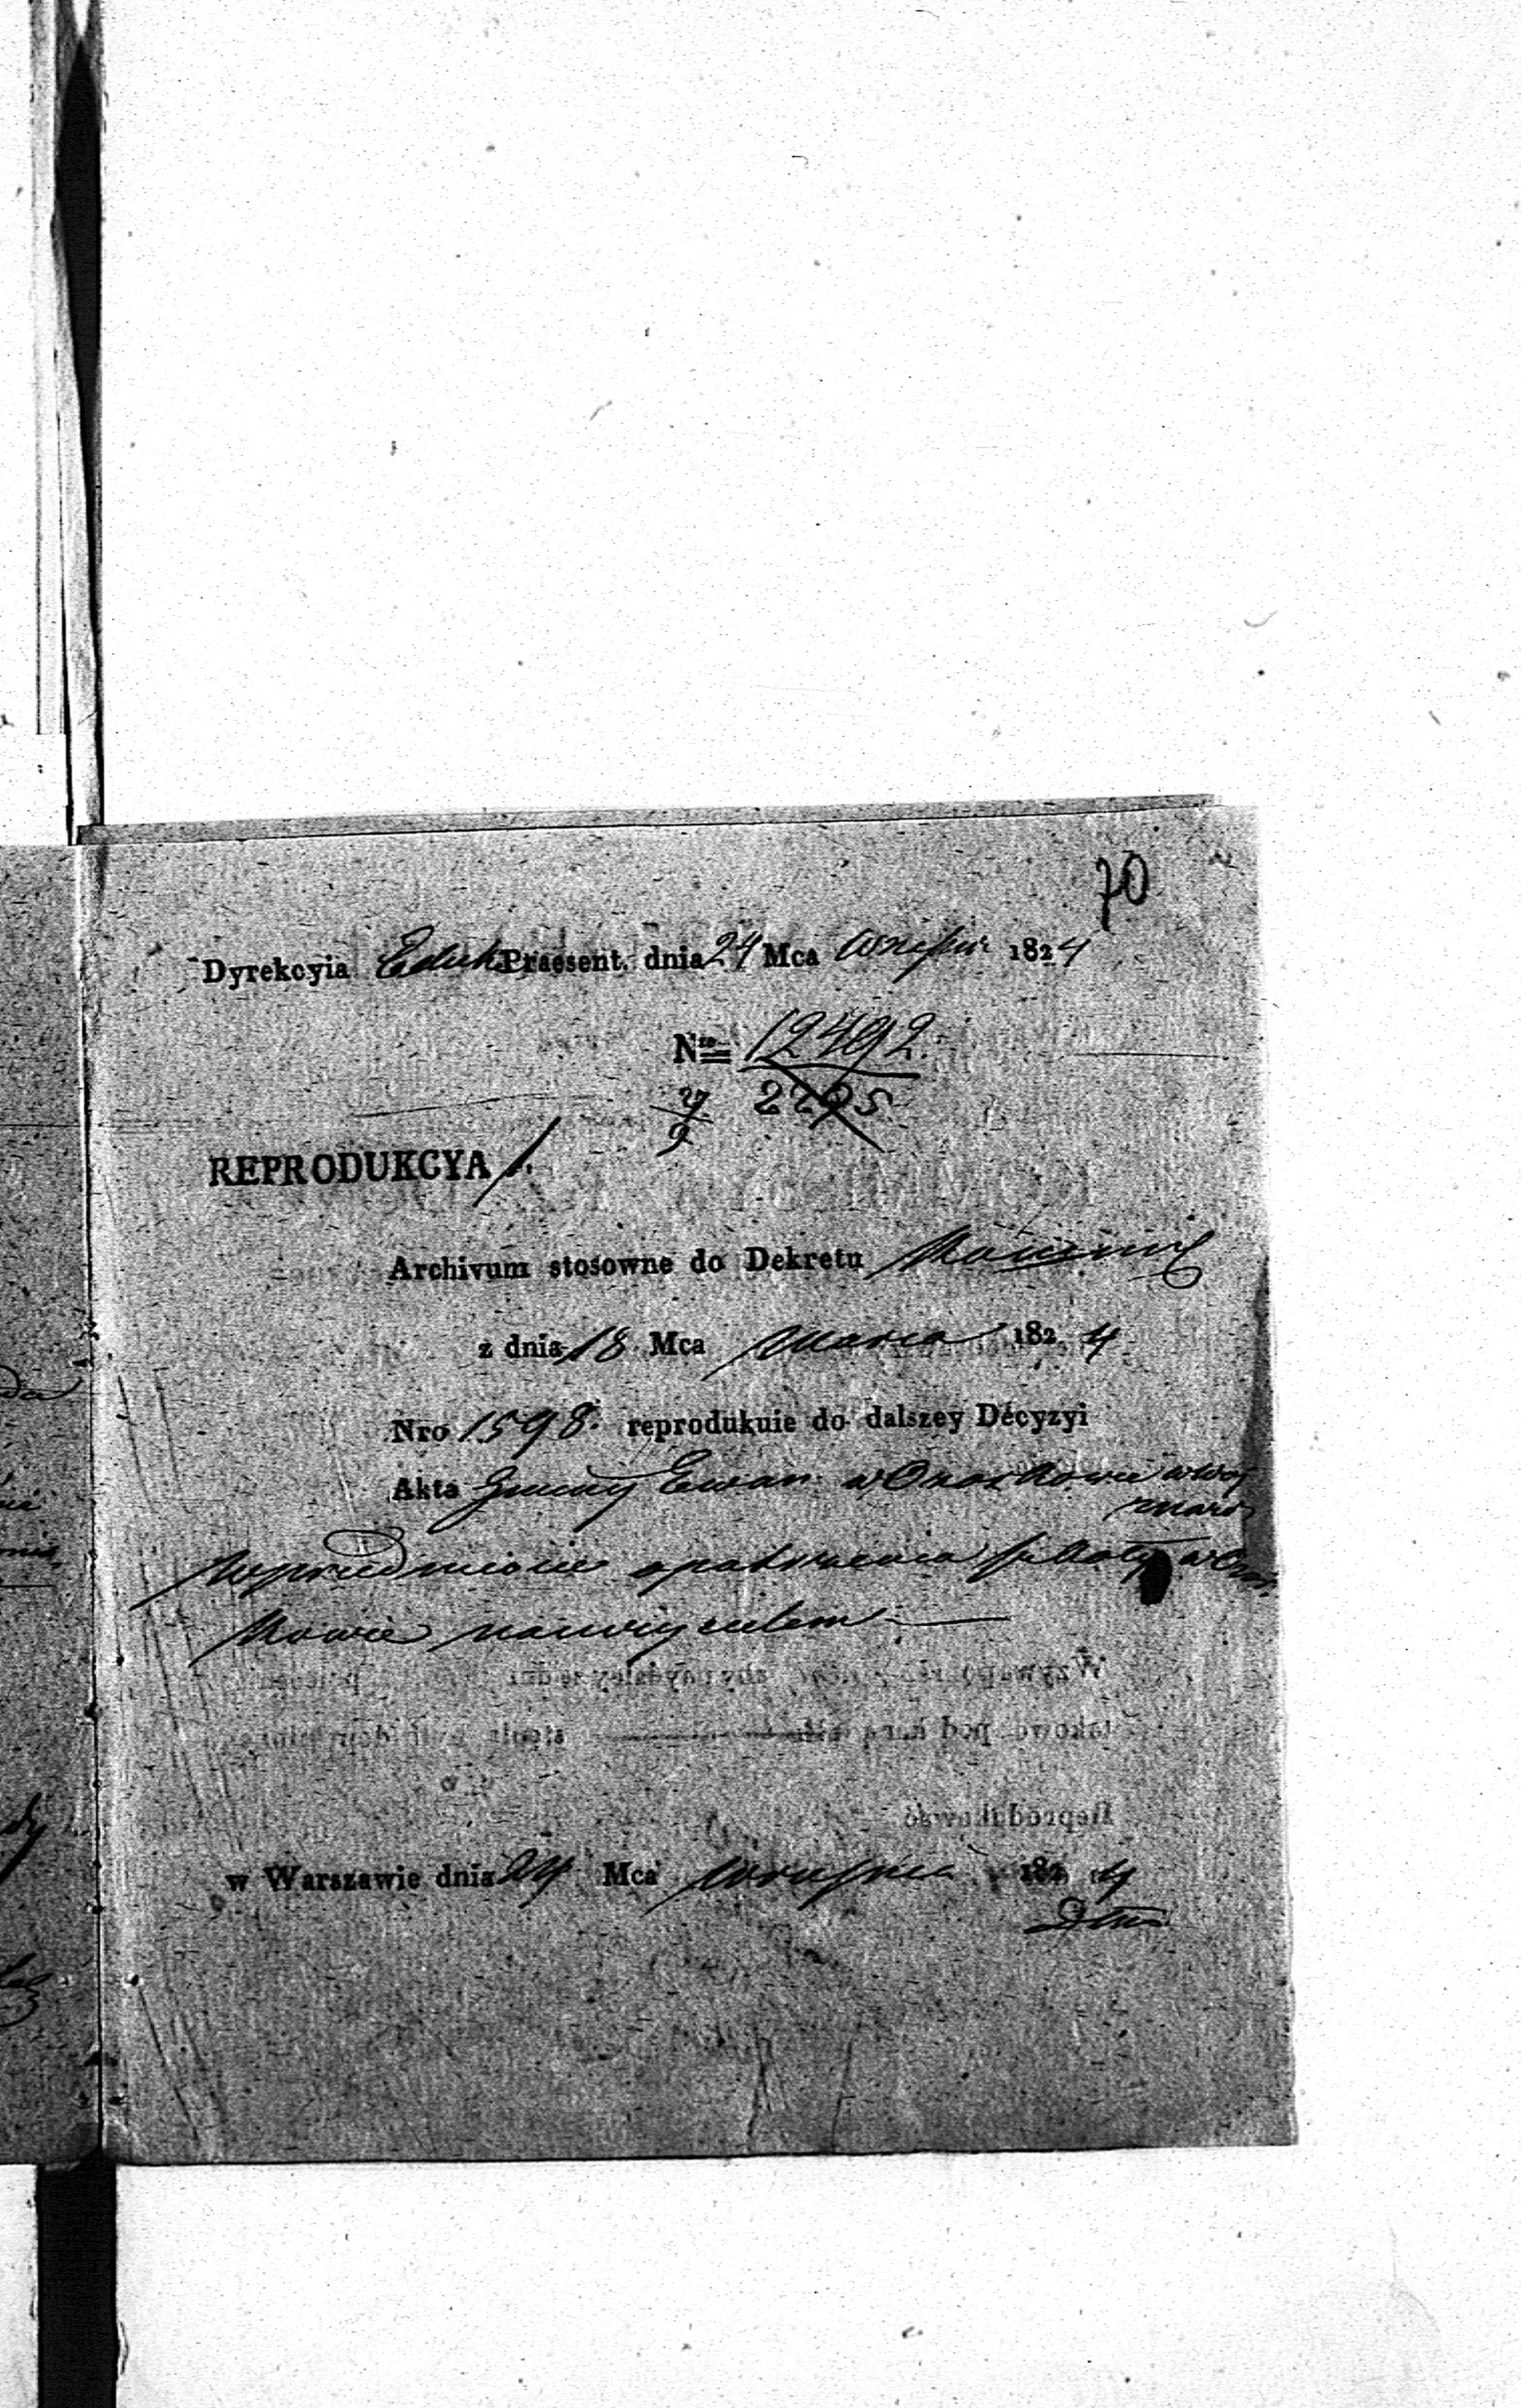 70
Dyrekcyia Eduk Praesent. dnia 24 Mca Wrześn 1824
Nro 12492.
2295
REPRODUKCYA 1.
Archivum stosowne do Dekretu
z dnia 18 Mca Marca 1824
Nro 1598. reprodukuie do dalszey Decyzyi
Akta Gminy Ewan: w Ozorkowie w Woj
mazo
w przedmiocie opatrzenia szkoły w Ozor
kowie nauczycielem
w Warszawie dnia 24 Mca Września 1824